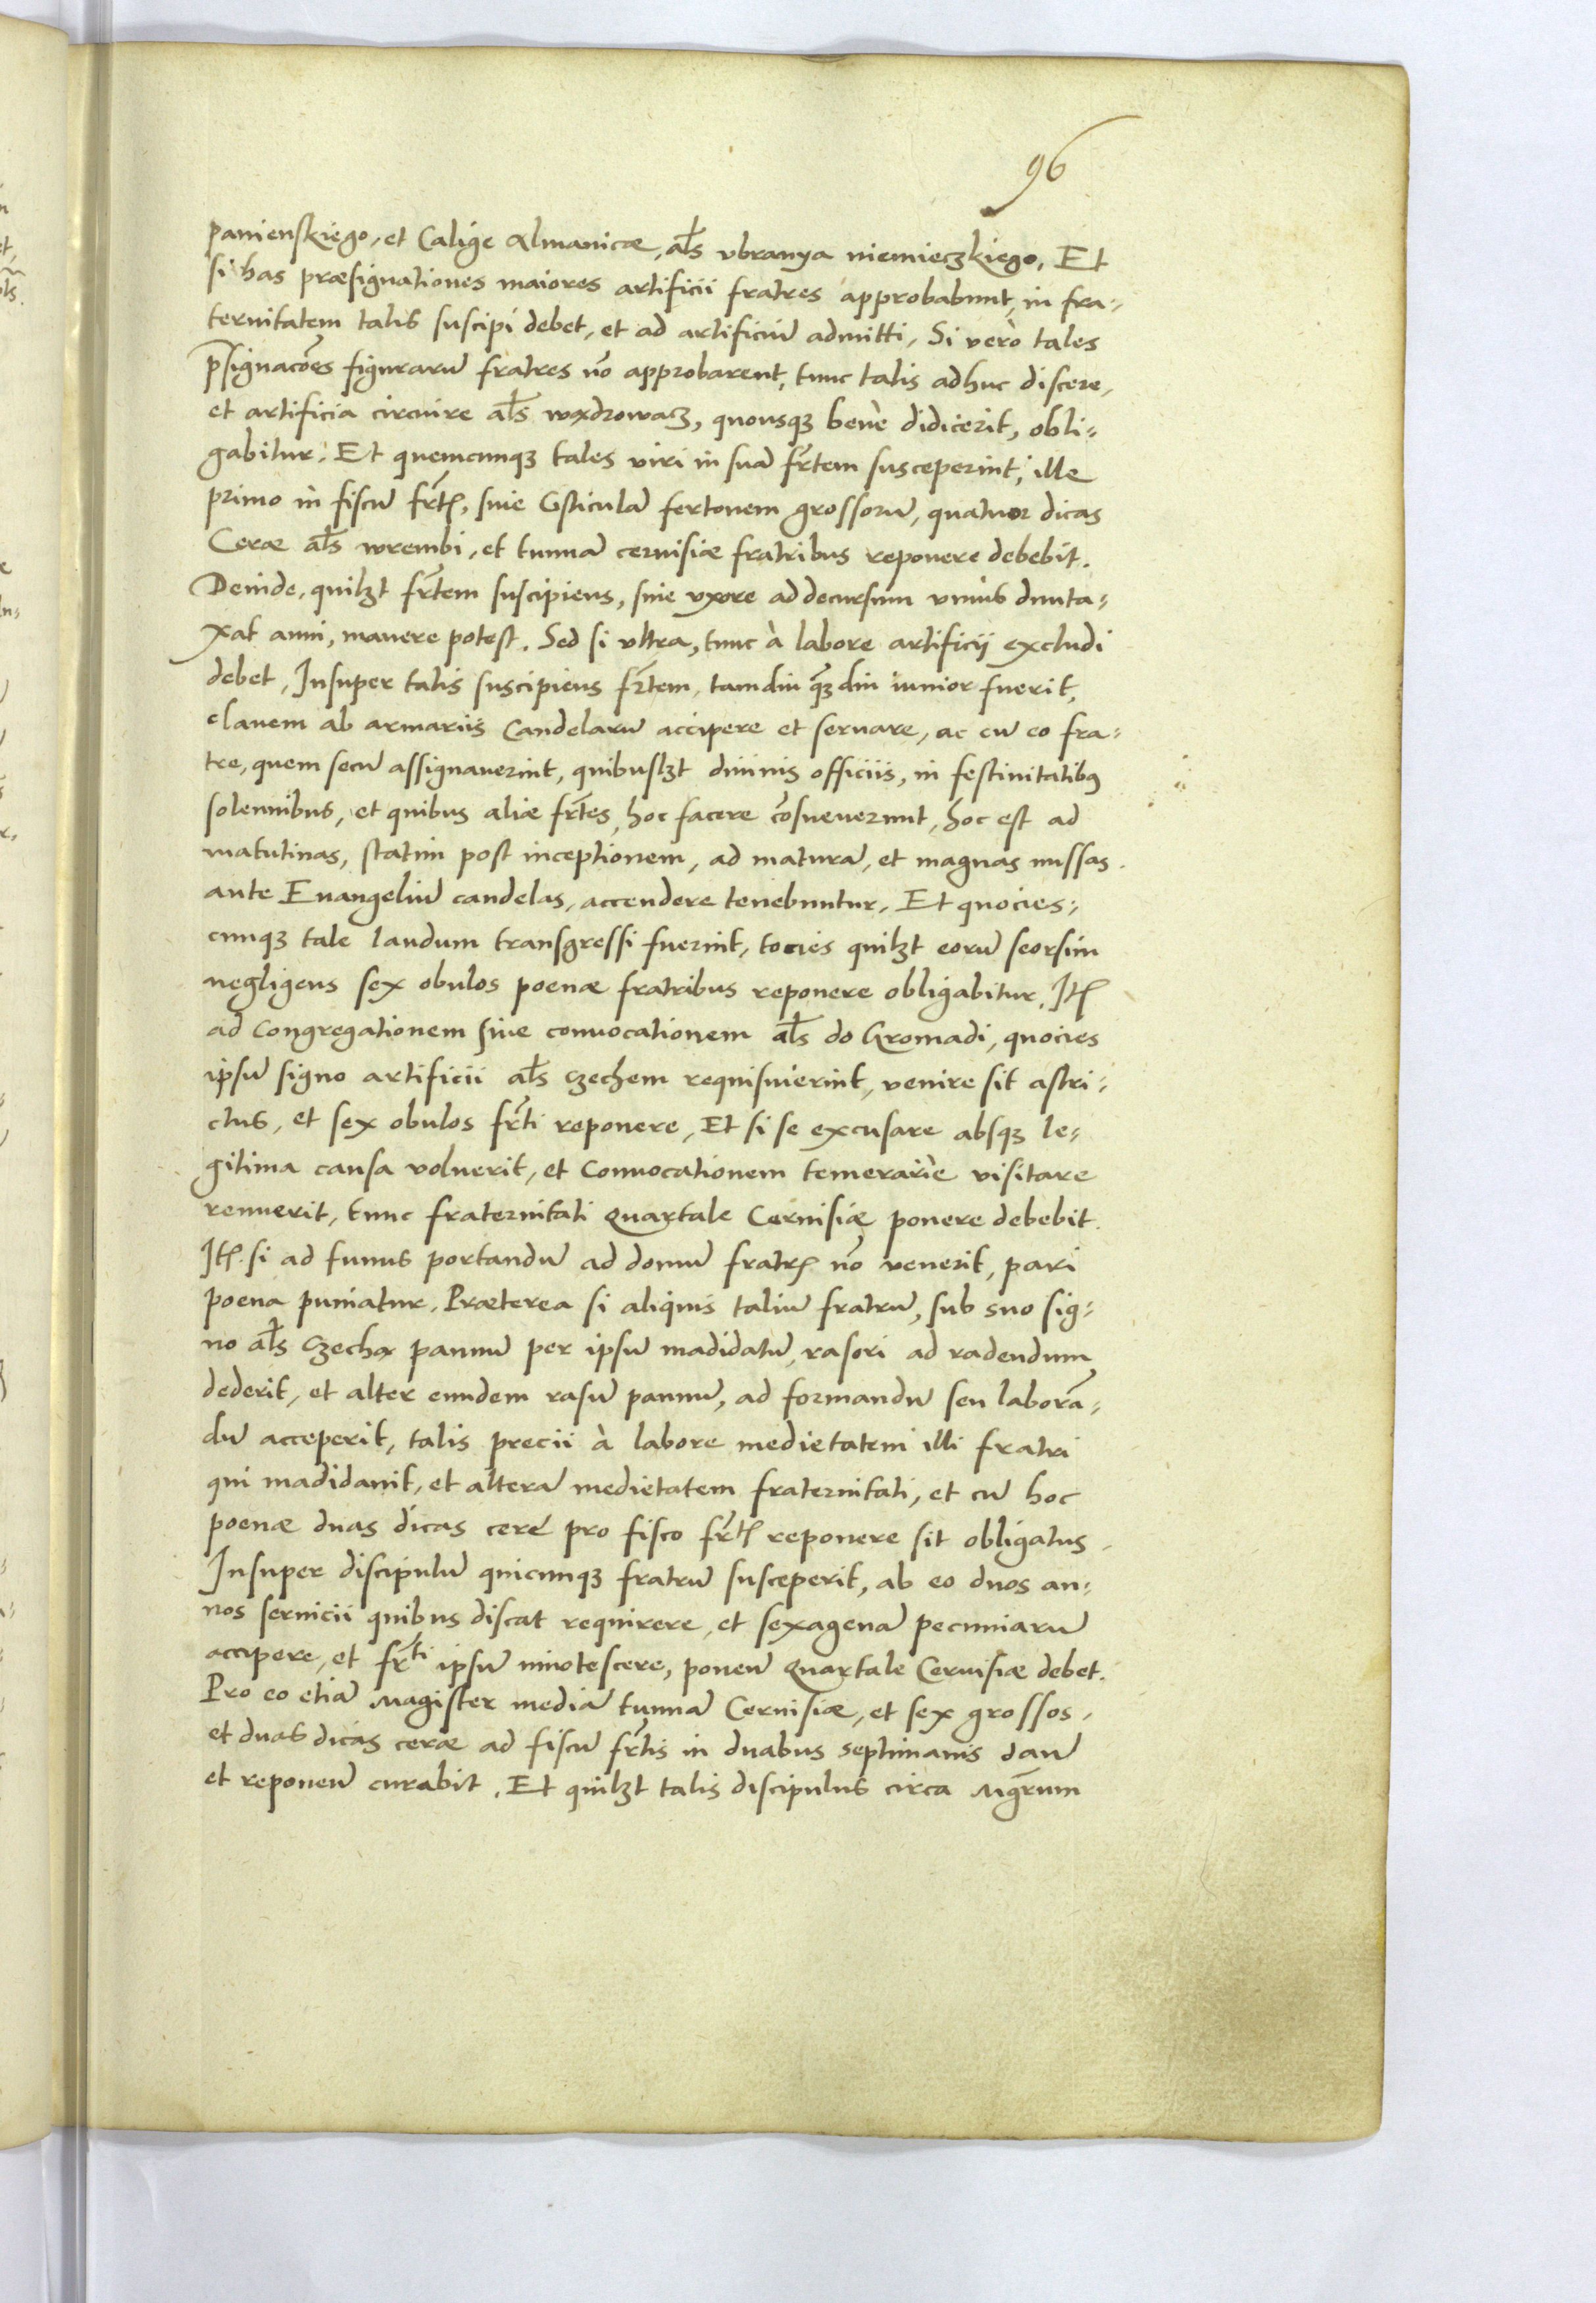 96
panienskiego, et Calige Almanicæ, al̃s vbranya niemieczkiego, Et
si has præsignationes maiores artificii fratres approbabunt, in fra=
ternitatem talis suscipi debet, et ad artificiũ admitti, Si verò tales
p̃signacões figurarũ fratres nõ approbarent, tunc talis adhuc discere,
et artificia circuire al̃s wądrowacz, quousqꝫ benè didicerit, obli=
gabitur. Et quemcunqꝫ tales viri in suã fr̃tem susceperint, ille
primo in fiscũ fr̃tꝭ, siue Cisticulã fertonem grossorũ, quatuor dicas
Ceræ al̃s wrembi, et tunnã ceruisiæ fratribus reponere debebit.
Deinde, quilꝫt fr̃tem suscipiens, sine vxore ad decursum vnius dunta=
xat anni, manere potest. Sed si vltra, tunc à labore artificij excludi
debet, Insuper talis suscipiens fr̃tem, tamdiu q̃ꝫdiu iunior fuerit,
clauem ab armariis Candelarũ accipere et seruare, ac cũ eo fra=
tre, quem secũ assignauerint, quibuslꝫt diuinis officiis, in festiuitatibꝰ
solennibus, et quibus aliæ fr̃tes, hoc facere cõsueuerunt, hoc est ad
matutinas, statim post inceptionem, ad maturã, et magnas missas
ante Euangeliũ candelas, accendere tenebuntur, Et quocies=
cunqꝫ tale laudum transgressi fuerint, tocies quilꝫt eorũ seorsim
negligens sex obulos poenæ fratribus reponere obligabitur, Itꝭ
ad Congregationem siue conuocationem al̃s do Gromadi, quocies
ipsũ signo artificii al̃s czechem requisiuerint, venire sit astri=
ctus, et sex obulos fr̃ti reponere, Et si se excusare absqꝫ le=
gitima causa voluerit, et Conuocationem temerariè visitare
renuerit, tunc fraternitati quartale Ceruisiæ ponere debebit.
Itꝭ. si ad funus portandũ ad domũ fratrꝭ nõ venerit, pari
poena puniatur, Præterea si aliquis taliũ fratrũ, sub suo sig=
no al̃s Czechą pannũ per ipsũ madidatũ, rasori ad radendum
dederit, et alter eundem rasũ pannũ, ad formandũ seu laborã=
dũ acceperit, talis precii à labore medietatem illi fratri
qui madidauit, et alterã medietatem fraternitati, et cũ hoc
poenæ duas dicas ceré pro fisco fr̃tꝭ reponere sit obligatus.
Insuper discipulũ quicunqꝫ fratrũ susceperit, ab eo duos an=
nos seruicii quibus discat requirere, et sexagenã pecuniarũ
accipere, et fr̃ti ipsũ innotescere, ponen̄ quartale Ceruisiæ debet.
Pro eo etiã Magister mediã tunnã Ceruisiæ, et sex grossos,
et duas dicas ceræ ad fiscũ fr̃tis in duabus septimanis dan̄
et reponen̄ curabit. Et quilꝫt talis discipulus circa Mgr̃um